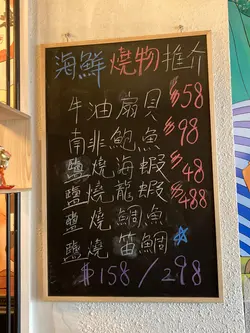 海鮮燒物推介
牛油扇貝 $58
南非鮑魚 $98
鹽燒海蝦 $48
鹽燒龍蝦 $488
鹽燒鯛魚
鹽燒笛鯛
$158/298